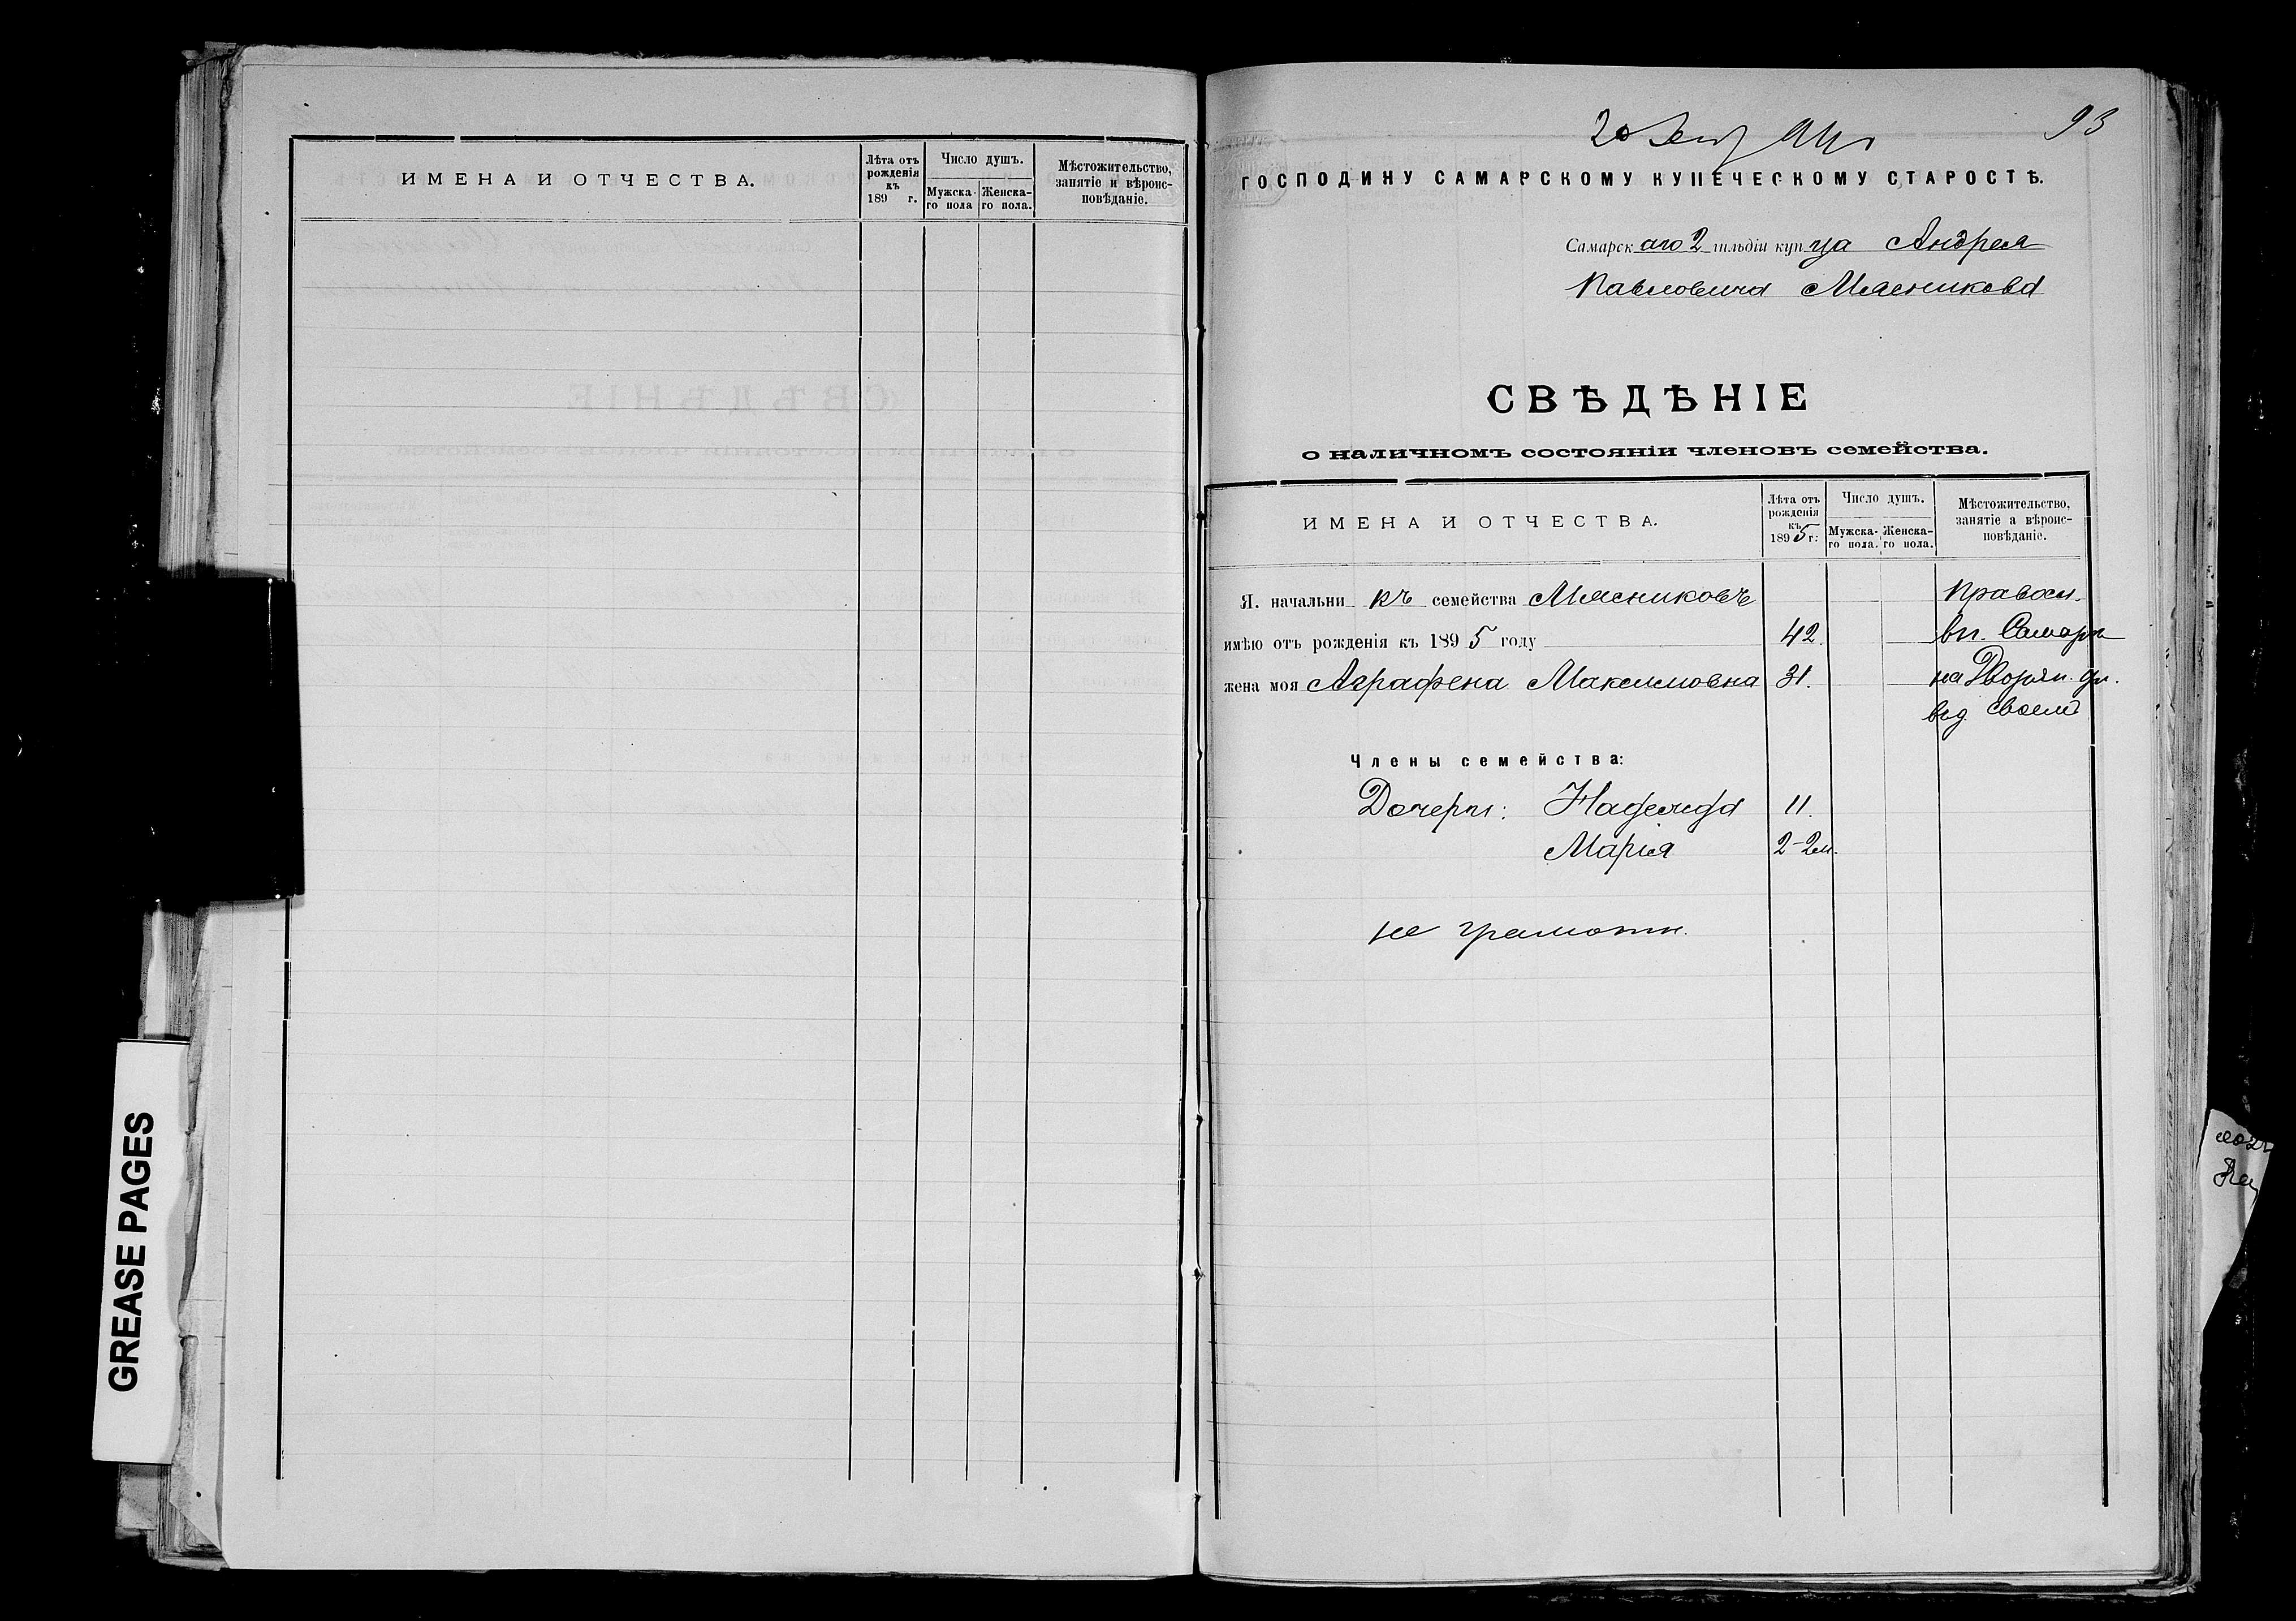 ИМЕНА И ОТЧЕСТВА.
Лѣта отъ рожденія къ 189 г.
Число душъ.
Мужска-го пола
Женска-го пола.
Мѣстожительство, занятіе и вѣроис-повѣданіе.
GREASE PAGES
20
93
ГОСПОДИНУ САМАРСКОМУ КУПЕЧЕСКОМУ СТАРОСТѢ.
Самарскаго 2 гильдіи купца Андрея
Павловича Мясникова
СВѢДѢНІЕ
о наличномъ состояніи членовъ семейства.
ИМЕНА И ОТЧЕСТВА.
Лѣта отъ рожденія къ 1895 г:
Число душъ.
Мужска-го пола.
Женска-го пола.
Мѣстожительство, занятіе а вѣроис-повѣданіе.
Я. начальникъ семейства Мясниковъ Правосл.
имѣю отъ рожденія къ 1895 году 42. вп. Самарѣ
жена моя Аграфена Максимовна 31. на Дворян. ул.
своемъ
Члены семейства:
Дочери: Надежда 11.
Марія 2-2м.
не грамотн.